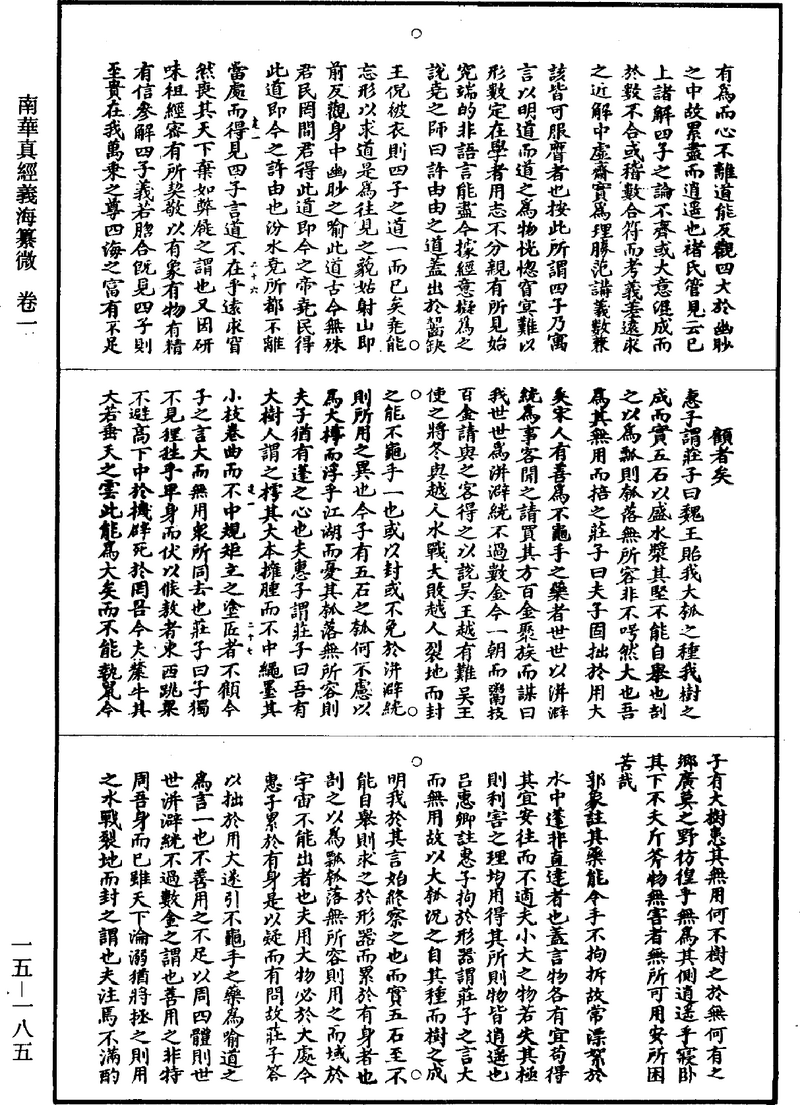 南華真經義海纂微　卷一
一五—一八五
有為而心不離道能反觀四大於幽眇
之中故累盡而逍遙也褚氏管見云已
上諸解四子之論不齊或大意混成而
於數不合或稽數合符而考義差遠求
之近解中虛齋實為理勝范講義數兼
該皆可服膺者也按此所謂四子乃寓
言以明道而道之為物恍惚窅冥難以
形數定在學者用志不分親有所見始
究端的非語言能盡今據經意擬為之
說堯之師曰許由由之道蓋出於齧缺
王倪被衣則四子之道一而已矣堯能
忘形以求道是為往見之藐姑射山即
前反觀身中幽眇之喻此道古今無殊
君民罔間君得此道即今之帝堯民得
此道即今之許由也汾水堯所都不離
當處而得見四子言道不在乎遠求窅
然喪其天下棄如弊屣之謂也又因研
味祖經密有所契敬以有象有物有精
有信參解四子義若脗合既見四子則
至貴在我萬乘之尊四海之富有不足
顧者矣
惠子謂莊子曰魏王貽我大瓠之種我樹之
成而實五石以盛水漿其堅不能自舉也剖
之以為瓢則瓠落無所容非不呺然大也吾
為其無用而掊之莊子曰夫子固拙於用大
矣宋人有善為不龜手之藥者世世以洴澼
絖為事客聞之請買其方百金聚族而謀曰
我世世為洴澼絖不過數金今一朝而鬻技
百金請與之客得之以說吳王越有難吳王
使之將冬與越人水戰大敗越人裂地而封
之能不龜手一也或以封或不免於洴澼絖
則所用之異也今子有五石之瓠何不慮以
為大樽而浮乎江湖而憂其瓠落無所容則
夫子猶有蓬之心也夫惠子謂莊子曰吾有
大樹人謂之樗其大本擁腫而不中繩墨其
小枝卷曲而不中規矩立之塗匠者不顧今
子之言大而無用眾所同去也莊子曰子獨
不見狸狌乎卑身而伏以候敖者東西跳梁
不避高下中於機辟死於罔罟今夫斄牛其
大若垂天之雲此能為大矣而不能執鼠今
子有大樹患其無用何不樹之於無何有之
鄉廣莫之野彷徨乎無為其側逍遙乎寢卧
其下不夭斤斧物無害者無所可用安所困
苦哉
郭象註其藥能令手不拘拆故常漂絮於
水中蓬非直達者也蓋言物各有宜苟得
其宜安往而不適夫小大之物若失其極
則利害之理均用得其所則物皆逍遙也
呂惠卿註惠子拘於形器謂莊子之言大
而無用故以大瓠況之自其種而樹之成
明我於其言始終察之也而實五石至不
能自舉則求之於形器而累於有身者也
剖之以為瓢瓠落無所容則用之而域於
宇宙不能出者也夫用大物必於大處今
惠子累於有身是以疑而有問故莊子答
以拙於用大遂引不龜手之藥為喻道之
為言一也不善用之不足以周四體則世
世洴澼絖不過數金之謂也善用之非特
周吾身而已雖天下淪溺猶將拯之則用
之水戰裂地而封之謂也夫注焉不滿酌